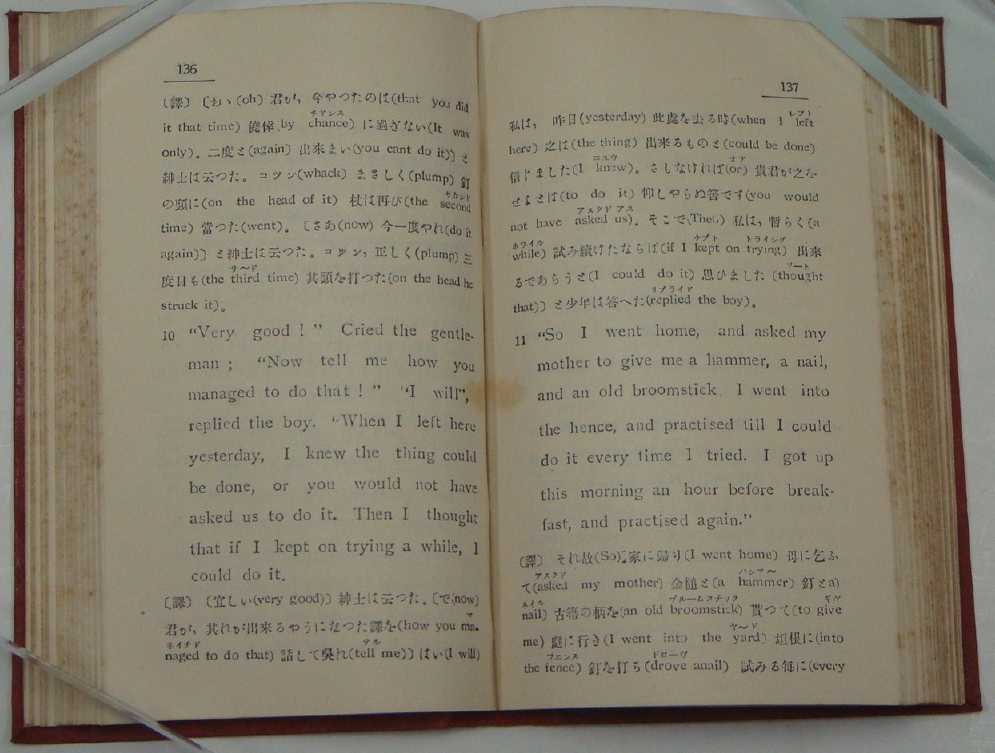 136
〔譯〕〔おゝ(oh) 君が、今やつたのは(that you did
it that time) 僥倖 by chance) に過ぎない(It was
チヤンス
only)。二度と(again) 出來まい(you cant do it)〕と
紳士は云つた。コツン(whack) まさしく(plump) 釘
の頭に(on the head of it) 杖は再び(the second
セカンド
time) 當つた(went)。〔さあ(now) 今一度やれ(do it
again)〕と紳士は云つた。コツン、正しく(plump) 三
度目も(the third time) 其頭を打つた(on the head he
サード
struck it)。
10 “Very good ! ” Cried the gentle-
man ; “Now tell me how you
managed to do that ! ” “I will”,
replied the boy. “When I left here
yesterday, I knew the thing could
be done, or you would not have
asked us to do it. Then I thought
that if I kept on trying a while, I
could do it.
〔譯〕〔宜しい(very good)〕紳士は云つた。〔で(now)
君が、其れが出來るやうになつた譯を(how you ma-
マ
naged to do that) 話して吳れ(tell me)〕はい(I will)
ネイヂド テル
137
私は、昨日(yesterday) 此處を去る時(when I left
レフト
here) 之は(the thing) 出來るものと(could be done)
信じました(I knew)。さもなければ(or) 貴君が之を
ニユウ オア
せよとは(to do it) 仰しやらぬ筈です(you would
not have asked us)。そこで(Then) 私は、暫らく(a
アスクド アス
while) 試み續けたならば(if I kept on trying) 出來
ホワイル ケプト トライング
るであらうと(I could do it) 思ひました (thought
ソート
that)〕と少年は答へた(replied the boy)。
リプライド
11 “So I went home, and asked my
mother to give me a hammer, a nail,
and an old broomstick. I went into
the hence, and practised till I could
do it every time I tried. I got up
this morning an hour before break-
fast, and practised again.”
〔譯〕それ故(So)、家に歸り(I went home) 母に乞ふ
て(asked my mother) 金槌と(a hammer) 釘と(a
アスクド ハンマー
nail) 古箒の柄を(an old broomstick) 貰つて(to give
ネイル ブルームスチツク ギヴ
me) 庭に行き(I went into the yard) 垣根に(into
ヤード
the fence) 釘を打ち(drove anail) 試みる每に(every
フエンス ドローヴ